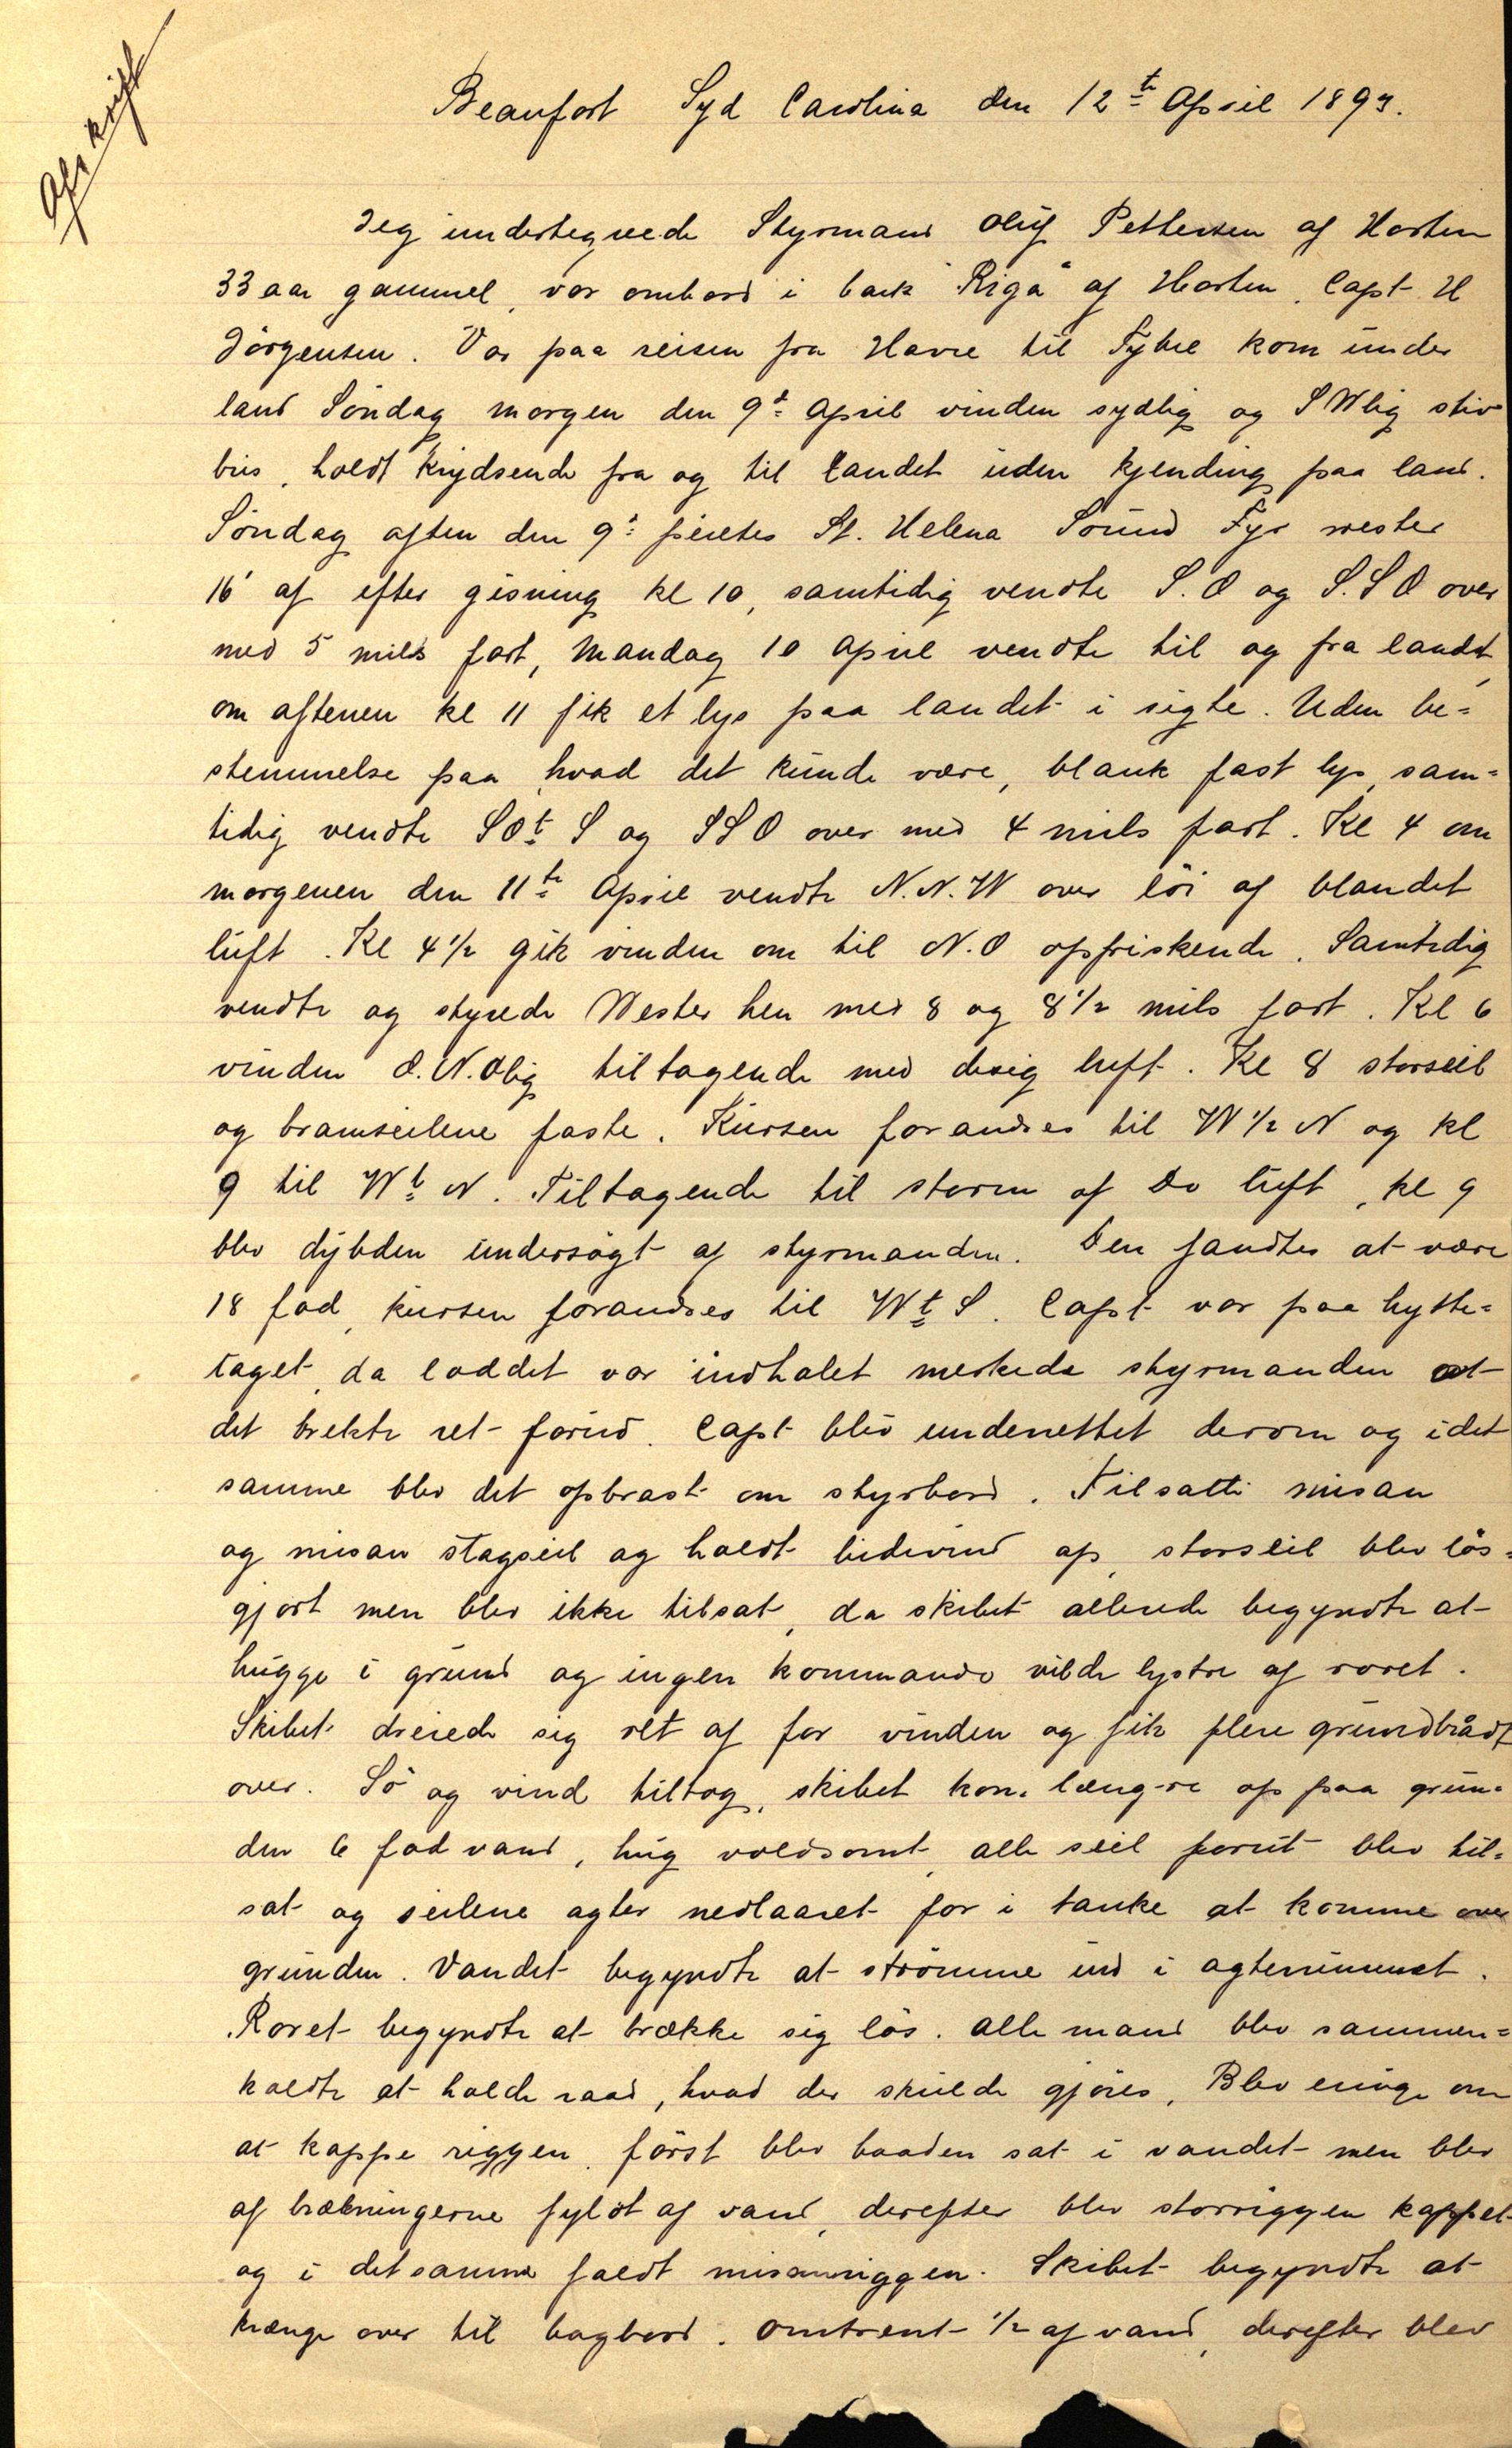 Afskrift
Beaufort Syd Carolina den 12te April 1893.
Jeg undertegnede Styrmand Oluf Pettersen af Horten
33 aar gammel, var ombord i bark "Riga" af Horten, Capt H
Jörgensen. Var paa reisen fra Havre til Tybee kom under
land Söndag morgen den 9de April vinden sydlig og SWlig stiv
bris, holdt krydsende fra og til landet uden kjending paa land.
Söndag aften den 9de peiltes St. Helena Sound Fyr vester
16' af efter gisning kl 10, samtidig vendte S.O og S.S.O over
med 5 mils fart, Mandag 10 April vendte til og fra landet,
om aftenen kl 11 fik et lys paa landet i sigte. Uden be=
stemmelse paa hvad det kunde være, blank fast lys, sam=
tidig vendte SOt S og SSO over med 4 mils fart. Kl 4 om
morgenen den 11te April vendte N.N.W over löi af blandet
luft. Kl 4 1/2 gik vinden om til N.O opfriskende. Samtidig
vendte og styrede Wester hen med 8 og 8 1/2 mils fart. Kl 6
vinden O.N.Olig tiltagende med disig luft. Kl 8 storseil
og bramseilene faste. Kursen forandres til W 1/2 N og kl
9 til Wt N. Tiltagende til storm af Do luft, kl 9
blev dybden undersögt af styrmanden. Den fandtes at være
18 fod, kursen forandres til Wt S. Capt var paa hytte=
taget, da loddet var indhalet merkede styrmanden at
det brekte ret forud. Capt blev underrettet derom og i det
samme blev det opbrast om styrbord. Tilsatte misan
og misan stagseil og holdt bidevind op, storseil blev lös=
gjort men blev ikke tilsat, da skibet allerede begyndte at
hugge i grund og ingen kommando vilde lystre af roret.
Skibet dreiede sig ret af for vinden og fik flere grundbrådt
over. Sö og vind tiltog, skibet kom læng-re op paa grun=
den 6 fod vand, hug voldsomt, alle seil forut blev til=
sat og seilene agter nedlaaret for i tanke at komme over
grunden. Vandet begyndte at strömme ind i agterrummet.
Roret begyndte at brække sig lös. alle mand blev sammen=
kaldte at holde raad, hvad der skulde gjöres. Blev enige om
at kappe riggen. först blev baaden sat i vandet men blev
af brækningerne fyldt af vand, derefter blev storriggen kappet
og i det samme faldt misanriggen. Skibet begyndte at
krænge over til bagbord. omtrent 1/2 af vand, derefter blev